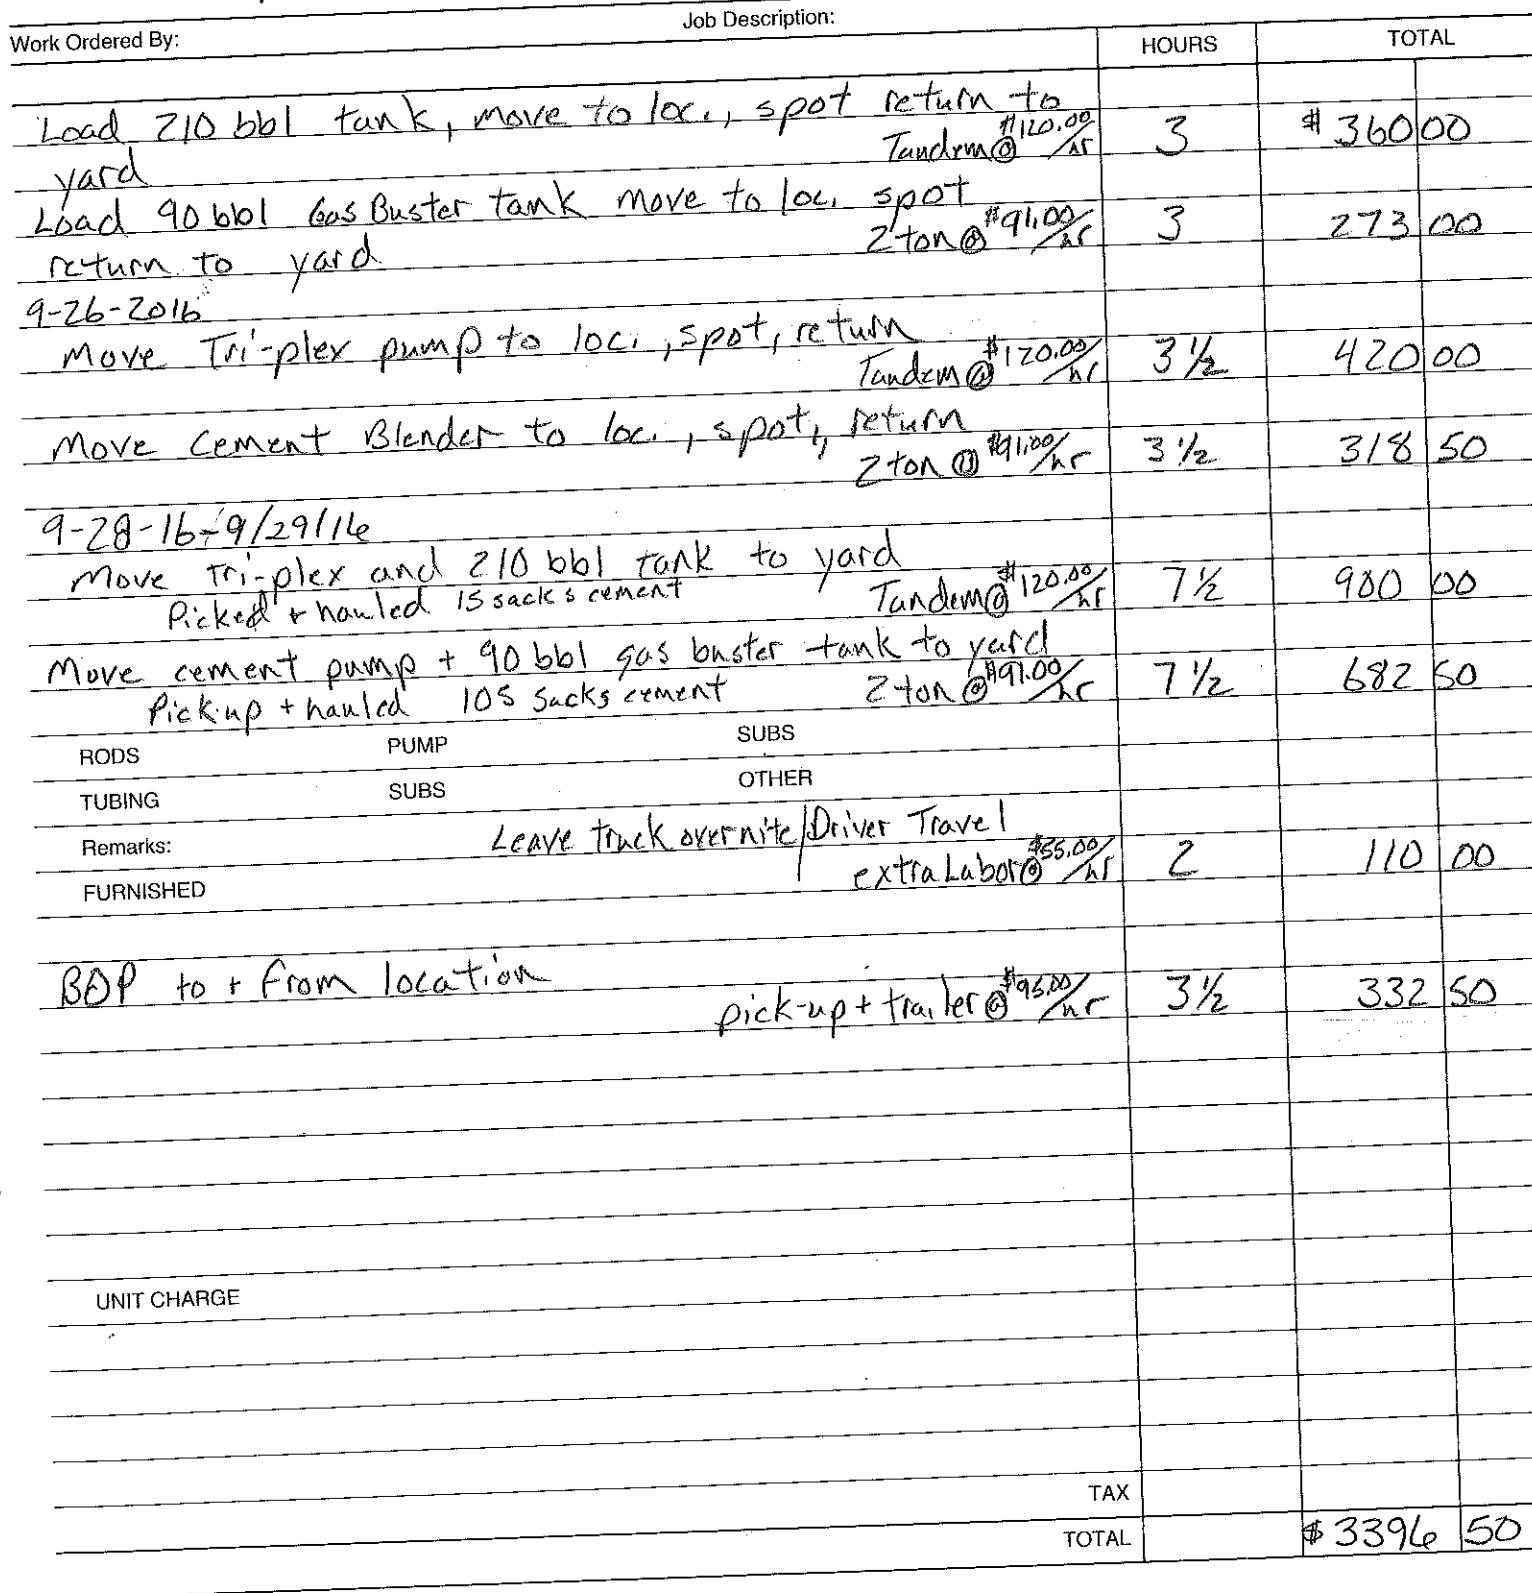 Job Description:
Work Ordered By:
HOURS TOTAL
Load 210 bbl tank, move to loc., spot return to
yard Tandem @ $120.00/hr 3 $360 00
Load 90 bbl Gas Buster tank move to loc. spot
return to yard 2 ton @ $91.00/hr 3 273 00
9-26-2016
Move Tri-plex pump to loc., spot, return
Tandem @ $120.00/hr 3 1/2 420 00
Move Cement Blender to loc., spot, return
2 ton @ $91.00/hr 3 1/2 318 50
9-28-16-9/29/16
Move Tri-plex and 210 bbl tank to yard
Picked + hauled 15 sacks cement Tandem @ $120.00/hr 7 1/2 900 00
Move cement pump + 90 bbl gas buster tank to yard
Pick-up + hauled 105 sacks cement 2 ton @ $91.00/hr 7 1/2 682 50
RODS PUMP SUBS
TUBING SUBS OTHER
Remarks: Leave truck overnite/Driver Travel
FURNISHED extra Labor @ $55.00/hr 2 110 00
BOP to + from location
pick-up + trailer @ $95.00/hr 3 1/2 332 50
UNIT CHARGE
TAX
TOTAL $3396 50